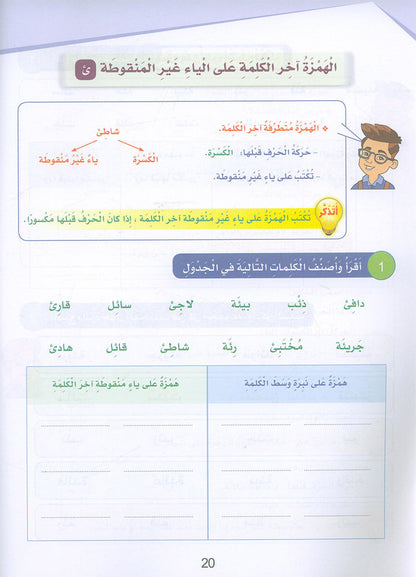 الْهَمْزَةُ آخِر الْكَلِمَةِ عَلى الْياءِ غَيْر الْمَنْقوطَة ئ
شاطِئ
الْكَسْرَة
ياءٌ غَيْرُ مَنْقوطَة
الْهَمْزَةُ مُتَطَرِّفَةٌ آخِرَ الْكَلِمَة.
- حَرَكَةُ الْحَرْفِ قَبْلَها: الْكَسْرَة.
- تُكْتَبُ عَلى ياءٍ غَيْرِ مَنْقوطَة.
أَتَذَكَّرُ
تُكْتَبُ الْهَمْزَةُ عَلى ياءٍ غَيْرِ مَنْقوطَةٍ آخِرَ الْكَلِمَة ، إِذا كانَ الْحَرْفُ قَبْلَها مَكْسورًا.
1 أَقْرَأُ وَأُصَنِّفُ الْكَلِماتِ التّالِيَةَ في الْجَدْوَلِ
دافِئ ذِئْب بيئَة لاجِئ سائِل قارِئ
جَريئَة مُخْتَبِئ رِئَة شاطِئ قائِل هادِئ
هَمْزَةٌ عَلى نَبْرَةٍ وَسَطَ الْكَلِمَة
هَمْزَةٌ عَلى ياءٍ مَنْقوطَةٍ آخِرَ الْكَلِمَة
20